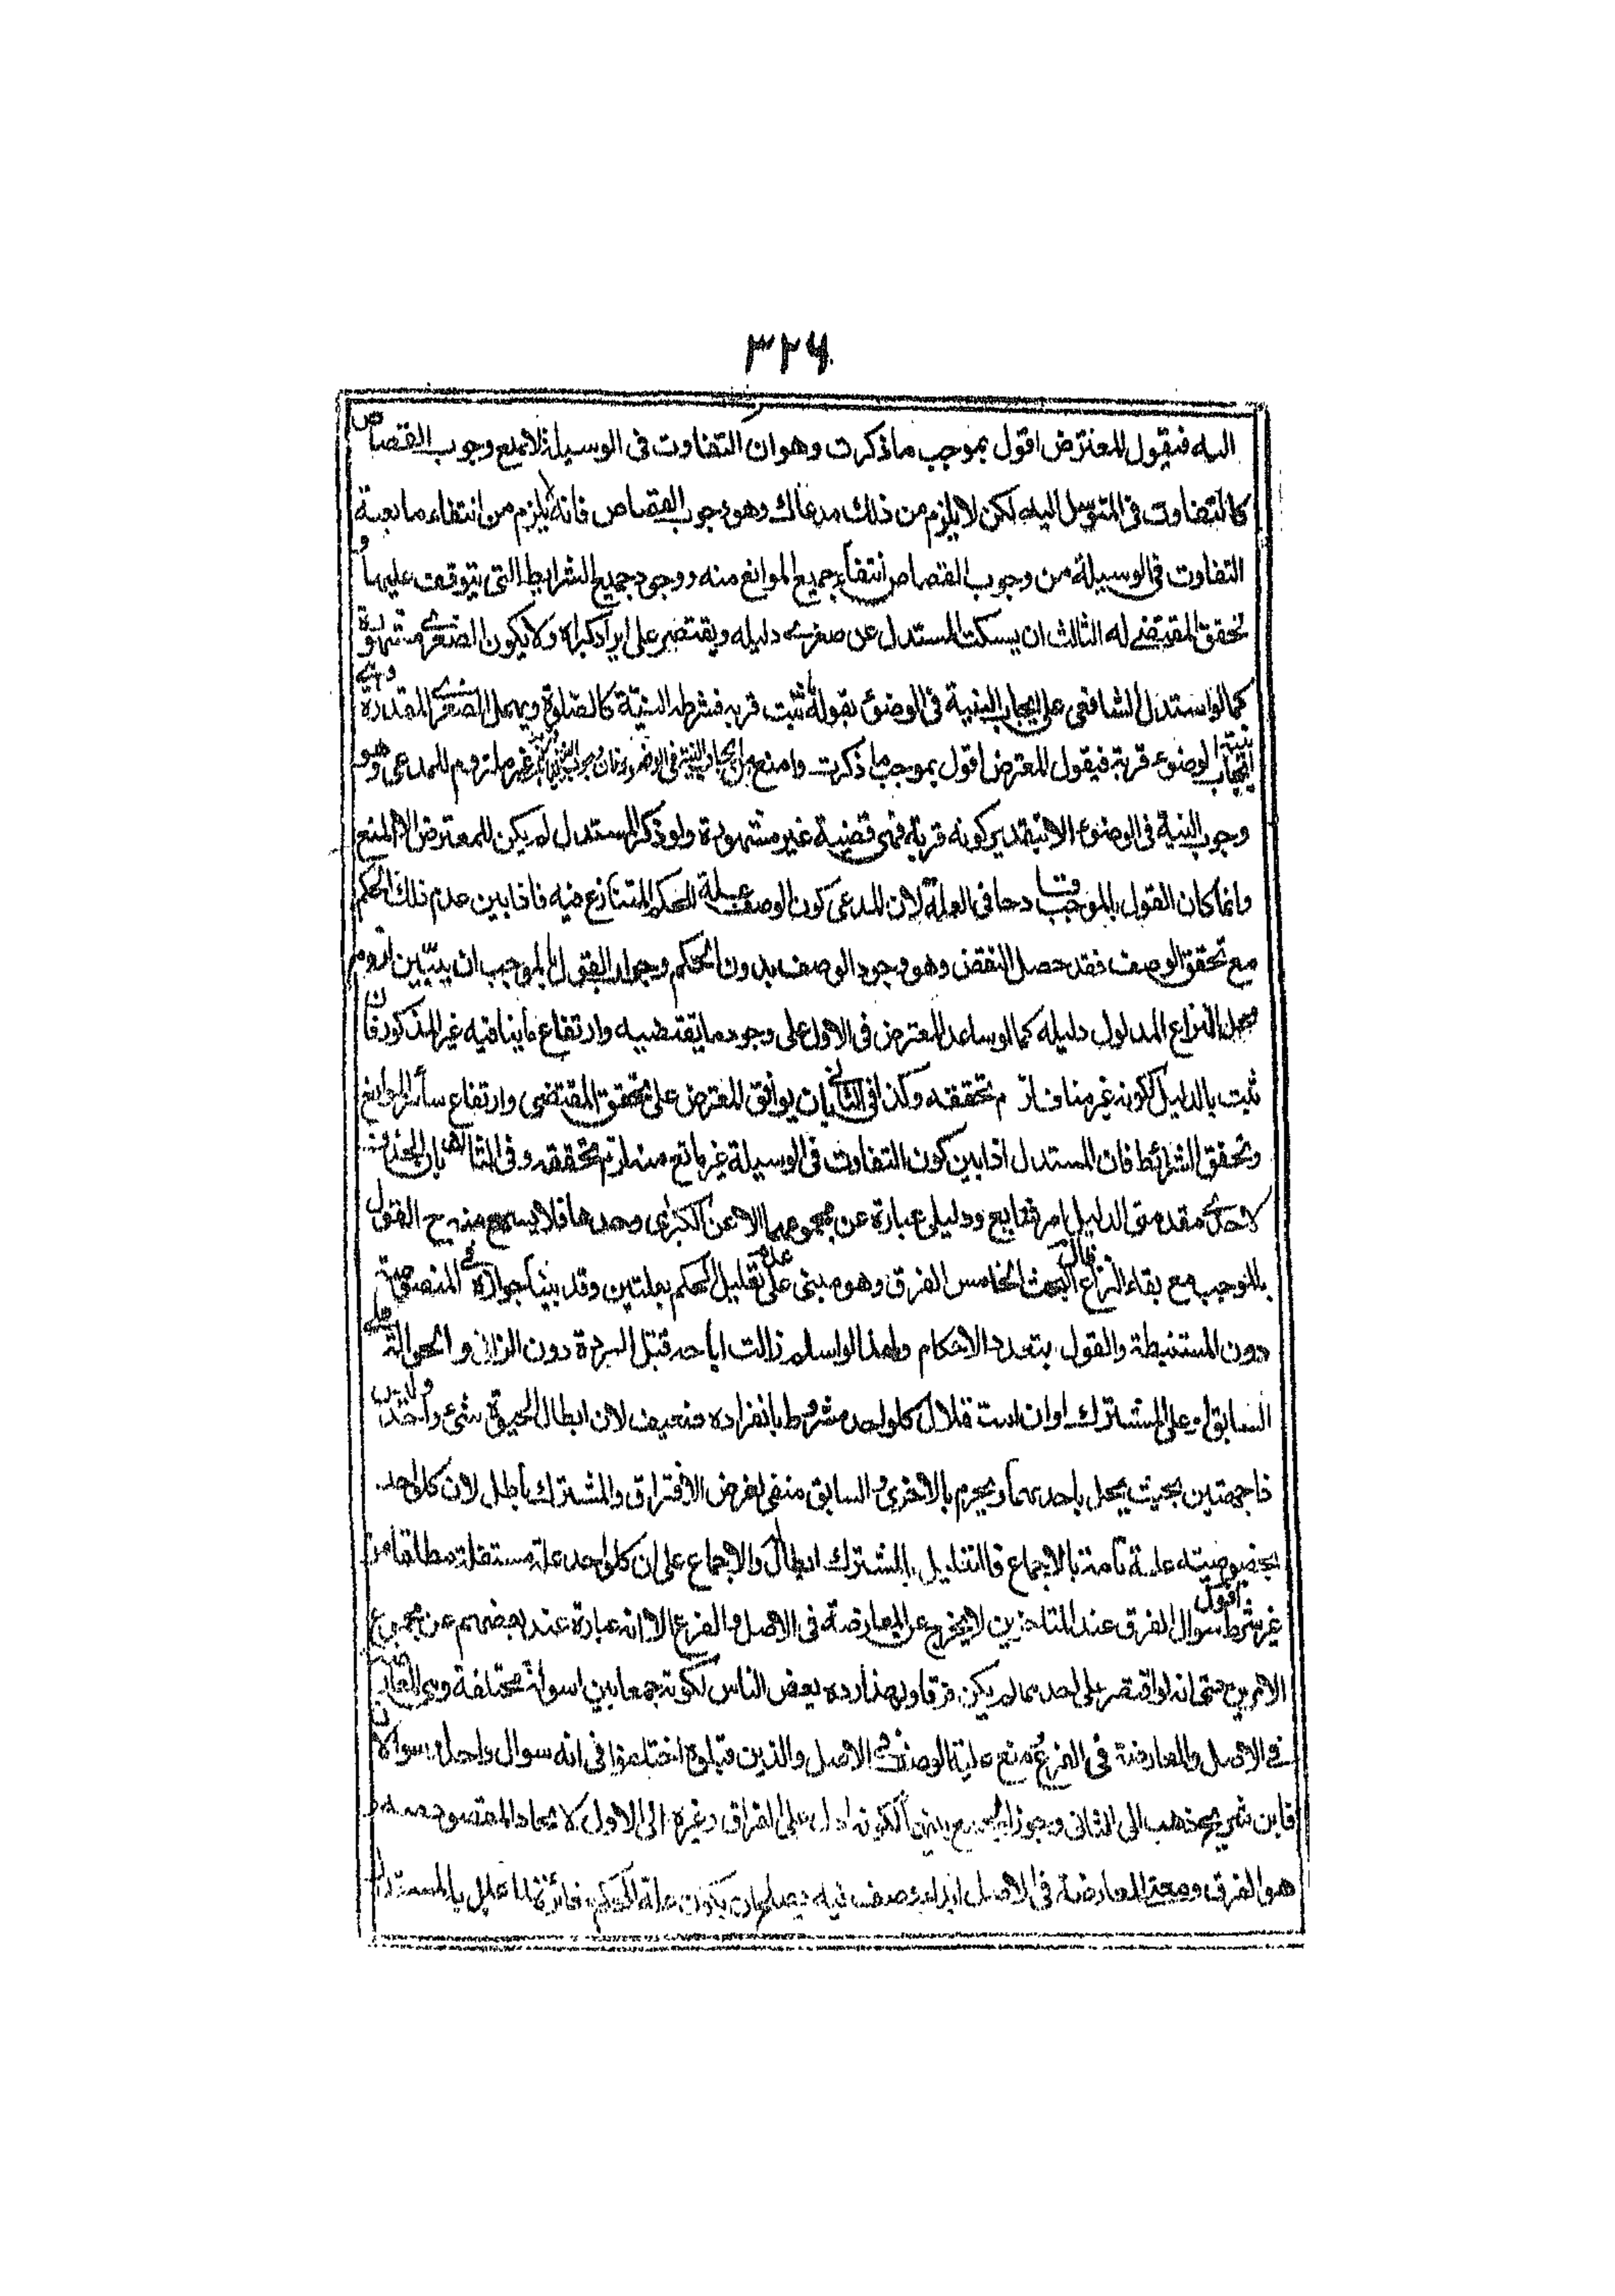 ٣٢٦
اليه فيقول المعترض اقول بموجب ما ذكرت وهو ان التفاوت فى الوسيلة لا يمنع وجوب القصاص
كالتفاوت فى المتوسل اليه لكن لا يلزم من ذلك مدعاك وهو وجوب القصاص فانه لا يلزم من انتفاء مانعية
التفاوت فى الوسيلة من وجوب القصاص انتفاء جميع الموانع منه ووجود جميع الشرايط التى يتوقف عليها و
تحقق المقتضى له الثالث ان يسكت المستدل عن صغرى دليله ويقتصر على ايراد كبراه ولا يكون الصغرى مشهورة
كما لو استدل الشافعى على ايجاب النية فى الوضوء بقوله ثبت قربه فشرطه النية كالصلوة ويهمل الصغرى المقدرة وهى
الوضوء قربة فيقول المعترض اقول بموجب ما ذكرت وامنع ايجاب النية فى الوضوء غير ملزوم للمدعى وهو
وجوب النية فى الوضوء الا بتقدير كونه قربة فهى قضية غير مشهورة ولو ذكر المستدل لم يكن للمعترض الا المنع
وانما كان القول بالموجب قادحا فى العلة لان المدعى كون الوصف علة للحكم المتنازع فيه فاذا بين عدم ذلك الحكم
مع تحقق الوصف فقد حصل النقض وهو وجود الوصف بدون الحكم وجواب القول بالموجب ان يبين لزوم
محل النزاع المدلول دليله كما لو ساعد المعترض فى الاول على وجود ما يقتضيه وارتفاع ما ينافيه غير المذكور فان
ثبت بالدليل كونه غير مناف لزم تحققه وكذا فى الثانى بان يوافق المعترض على تحقق المقتضى وارتفاع سائر الموانع
وتحقق الشرائط فان المستدل اذا بين كون التفاوت فى الوسيلة غير مانع منه لزم تحققه وفى الثالث بان
لاحدى مقدمتى الدليل امر شايع ودليلى عبارة عن مجموعهما لا عن الكبرى وحدها فلا يسمع منه ح القول
بالموجب مع بقاء النزاع قال البحث الخامس الفرق وهو مبنى على تعليل الحكم بعلتين وقد بينا جوازه فى المنصوصة
دون المستنبطة والقول بتعدد الاحكام ولهذا لو اسلم زالت اباحة قتل الردة دون الزنا والحوالة على
السابق او على المشترك او ان استقلال كل واحد مشروط بانفراده ضعيف لان ابطال الحيوة شئ واحد
ذا جهتين بحيث يحل باحدهما ويحرم بالاخرى والسابق منفى لفرض الافتراق والمشترك باطل لان كل واحد
بخصوصيته علة تامة بالاجماع فالتعليل بالمشترك ابطال والاجماع على ان كل واحد علة مستقلة مطلقا من
غير شرط اقول سؤال الفرق عند المتاخرين لا يخرج عن المعارضة فى الاصل او الفرع الا انه عبارة عند بعضهم عن مجموع
الامرين حتى انه لو اقتصر على احدهما لم يكن فرقا ولهذا رده بعض الناس لكونه جمعا بين اسولة مختلفة وهى
فى الاصل والمعارضة فى الفرع ومنع علية الوصف فى الاصل والذين قبلوه اختلفوا فى انه سوال واحد او سوالان
فابن شريح ذهب الى الثانى وجوز الجمع بينهما لكونه ادل على الفراق وغيره الى الاول لاتحاد المقصود منه
هو الفرق ومعنى المعارضة فى الاصل ابداء وصف فيه يصلح ان يكون علة للحكم